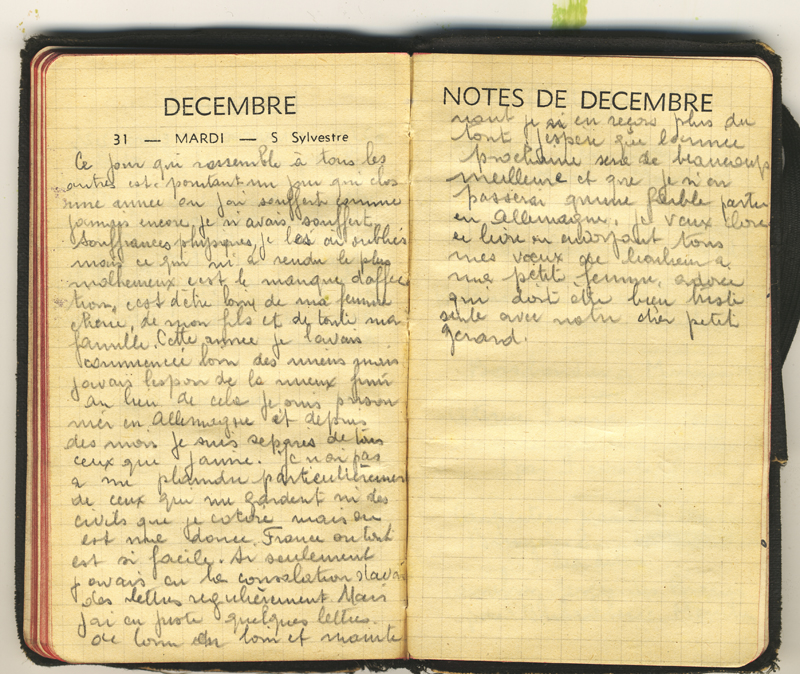 DECEMBRE
31 — MARDI — S Sylvestre
Ce jour qui rassemble à tous les
autres est pourtant un jour qui clos
une année ou j'ai souffert comme
jamais encore je n'avais souffert
souffrances physiques, je les ai oubliés
mais ce qui m'a rendu le plus
malheureux c'est le manque d'affec
tion, c'est d'être loin de ma femme
chérie, de mon fils et de toute ma
famille. Cette année je l'avais
commencée loin des miens mais
j'avais l'espoir de la mieux finir
au lieu de cela je suis prison
nier en Allemagne et depuis
des mois je suis séparés de tous
ceux que j'aime. Je n'ai pas
a me plaindre particulièrement
de ceux qui me gardent ni des
civils que je cotoie mais ou
est notre douce France ou tout
est si facile. Si seulement
j'avais eu la consolation d'avoi
des lettres regulièrement. Mais
j'ai eu juste quelques lettres.
de loin en loin et mainte
NOTES DE DECEMBRE
nant je n'en reçois plus du
tout j'espère que l'année
prochaine sera de beaucoup
meilleure et que je n'en
passerai qu'une faible partie
en Allemagne. Je veux clore
ce livre en envoyant tous
mes vœux de bonheur a
ma petit femme, adorée
qui doit etre bien triste
seule avec notre cher petit
Gérard.